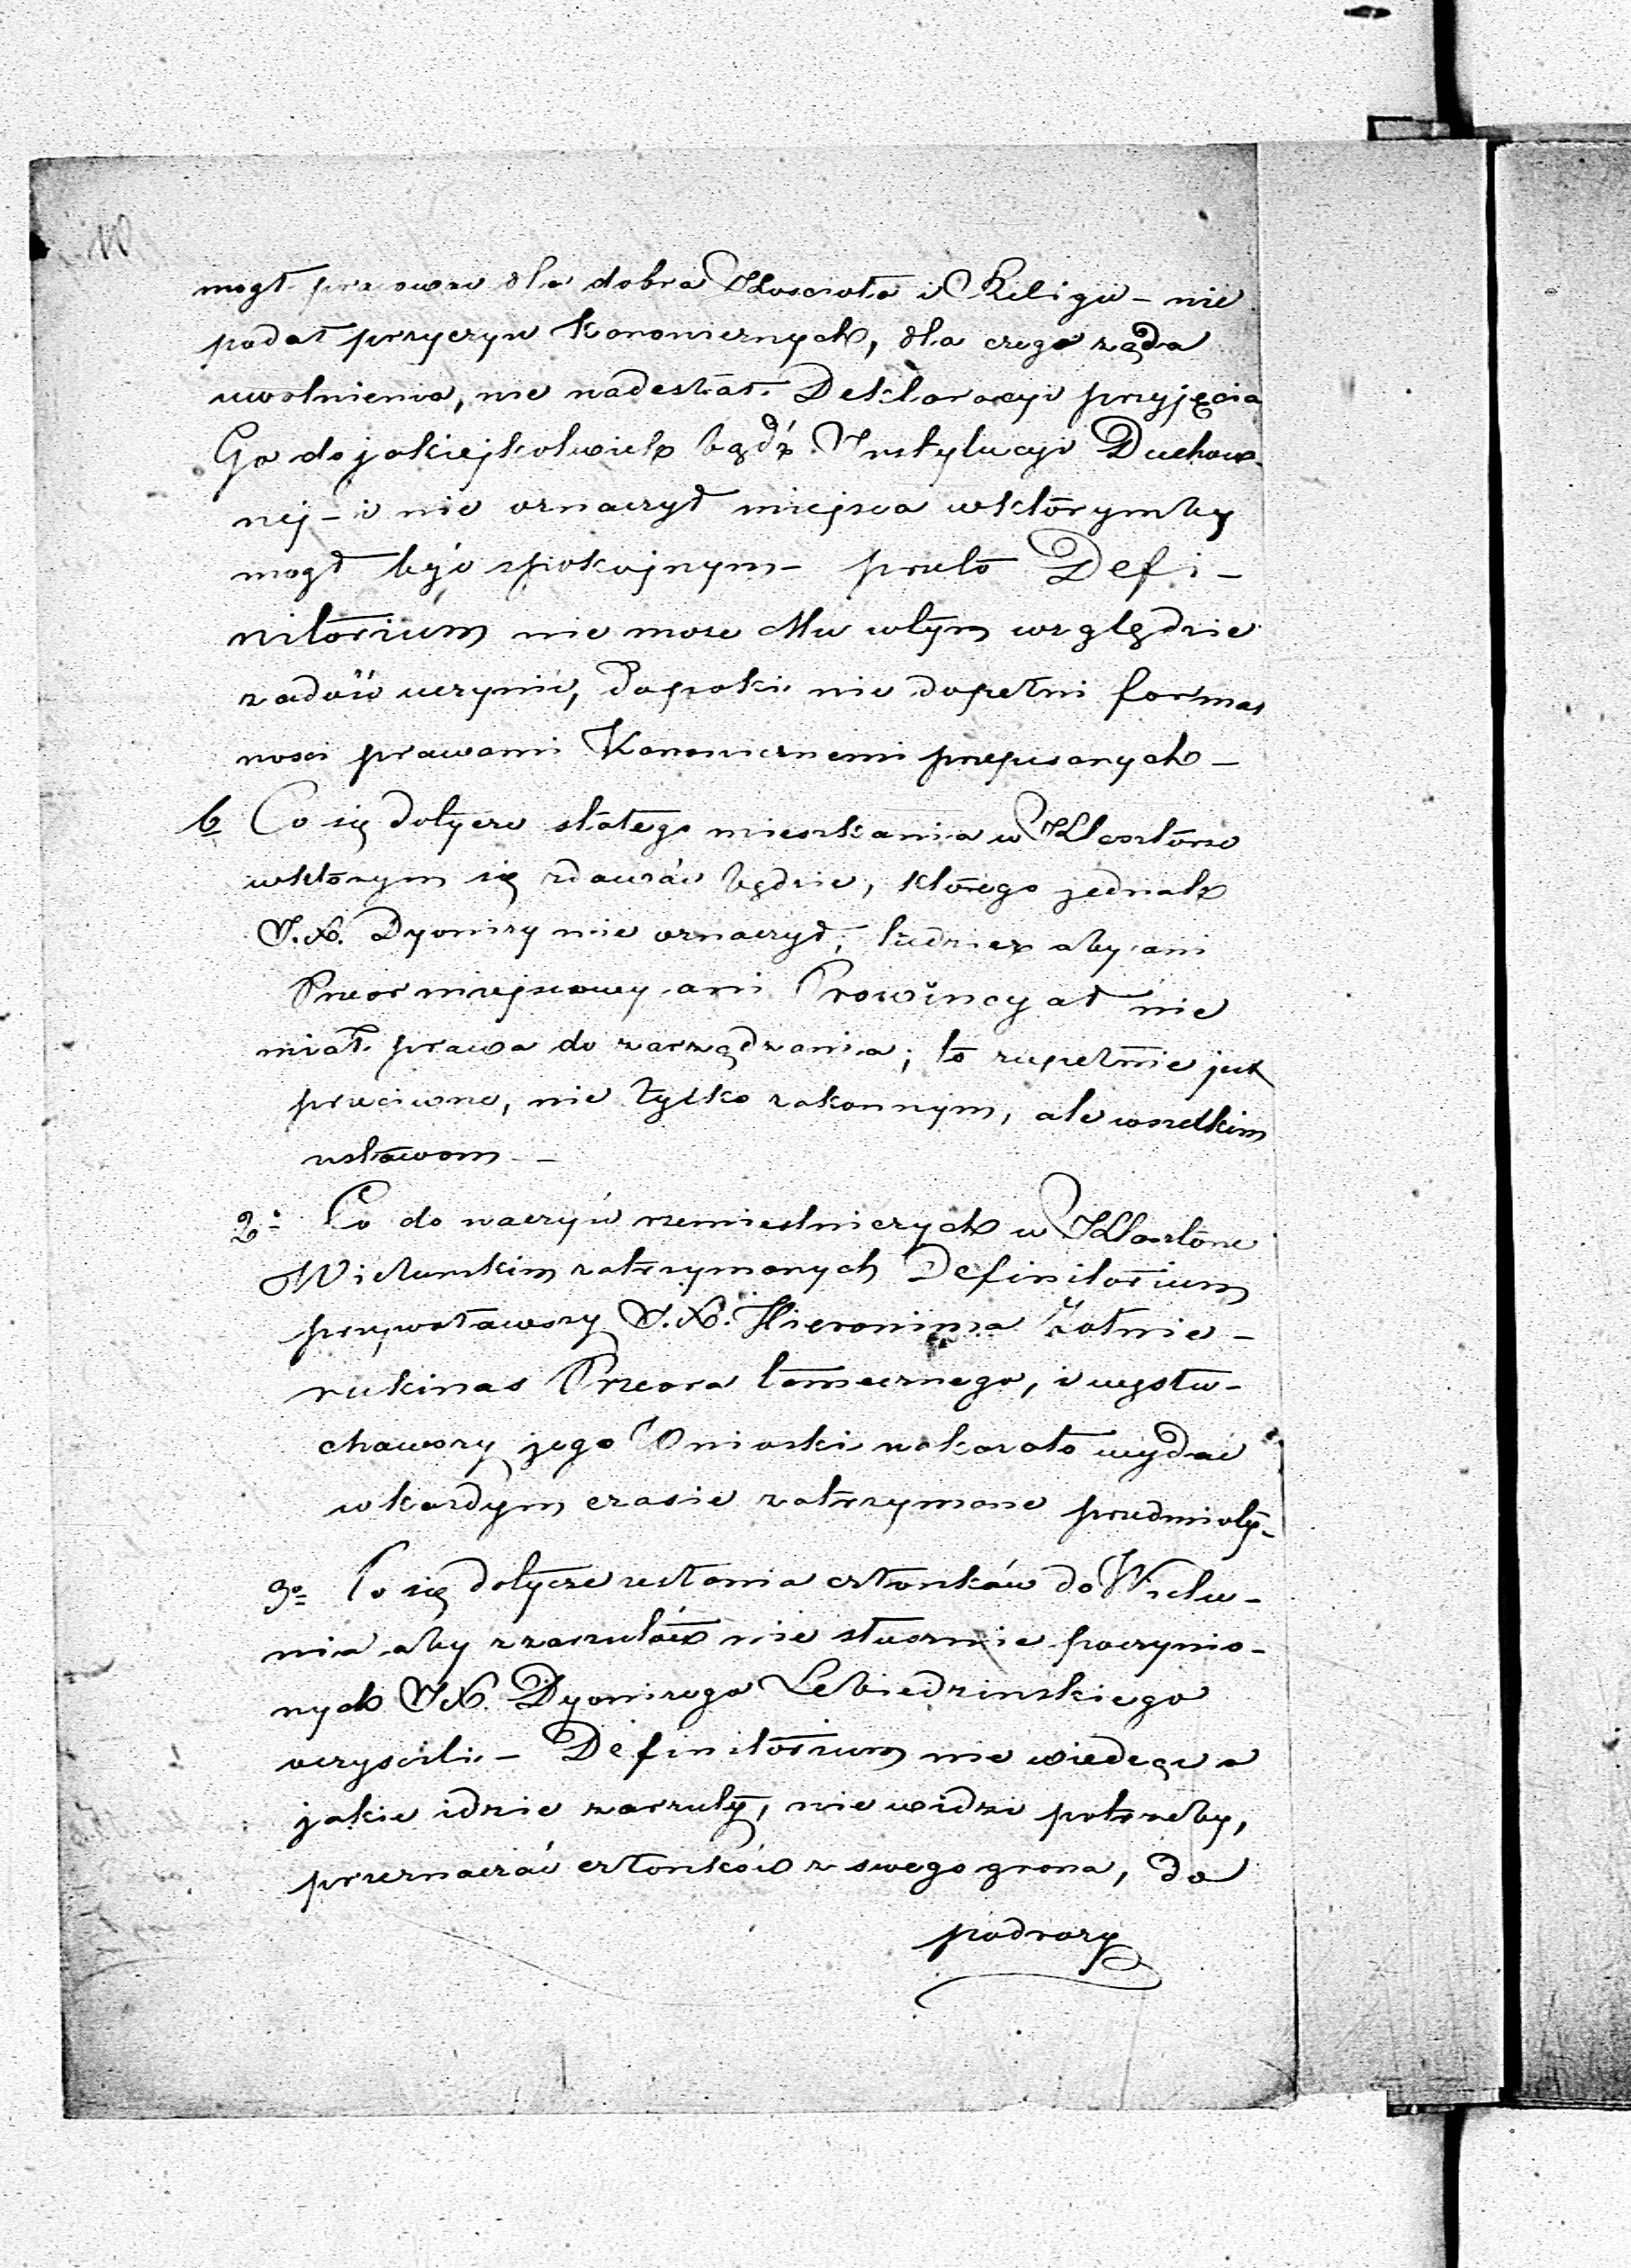 mogł pracować dla dobra Koscioła i Religii – nie
podał przyczyn kanonicznych, dla czego rząda
uwolnienia, nie nadesłał Deklaracyi przyjęcia
Go do jakiejkolwiek bądź Instytucyi Duchow-
nej – i nie oznaczył miejsca wktórymby
mogł być spokojnym – przeto Defi-
nitorium nie może Mu wtym względzie
zadość uczynić, dopoki nie dopełni formal
nosci prawami Kanonicznemi przepisanych –
b Co się dotycze stałego mieszkania w Klasztorze
wktórym się zdawać będzie, którego jednak
J.X. Dyonizy nie oznaczył, tudzież aby ani
Przeor miejscowy ani Prowincyał nie
miał prawa do zarządzania; to zupełnie jest
przeciwne, nie tylko zakonnym, ale wszelkim
ustawom –
2o Co do naczyń rzemieslniczych w Klasztorze
Wieluńskim zatrzymanych Definitorium
przywoławszy J.X. Hieronima Żołnie-
rukinas Przeora tamecznego, i wysłu-
chawszy jego Wnioski nakazało wydać
wkażdym czasie zatrzymane przedmioty –
3o Co się dotycze zesłania członków do Wielu-
nia aby zzarzutów nie słusznie poczynio-
nych JX. Dyonizego Lebiedzinskiego
oczyscili – Definitorium nie wiedząc o
jakie idzie zarzuty, nie widzi potrzeby,
przeznaczać członków z swego grona, do
podrozy